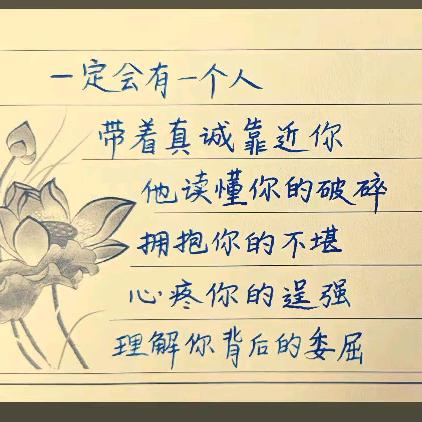 一定会有一个人
带着真诚靠近你
他读懂你的破碎
拥抱你的不堪
心疼你的逞强
理解你背后的委屈